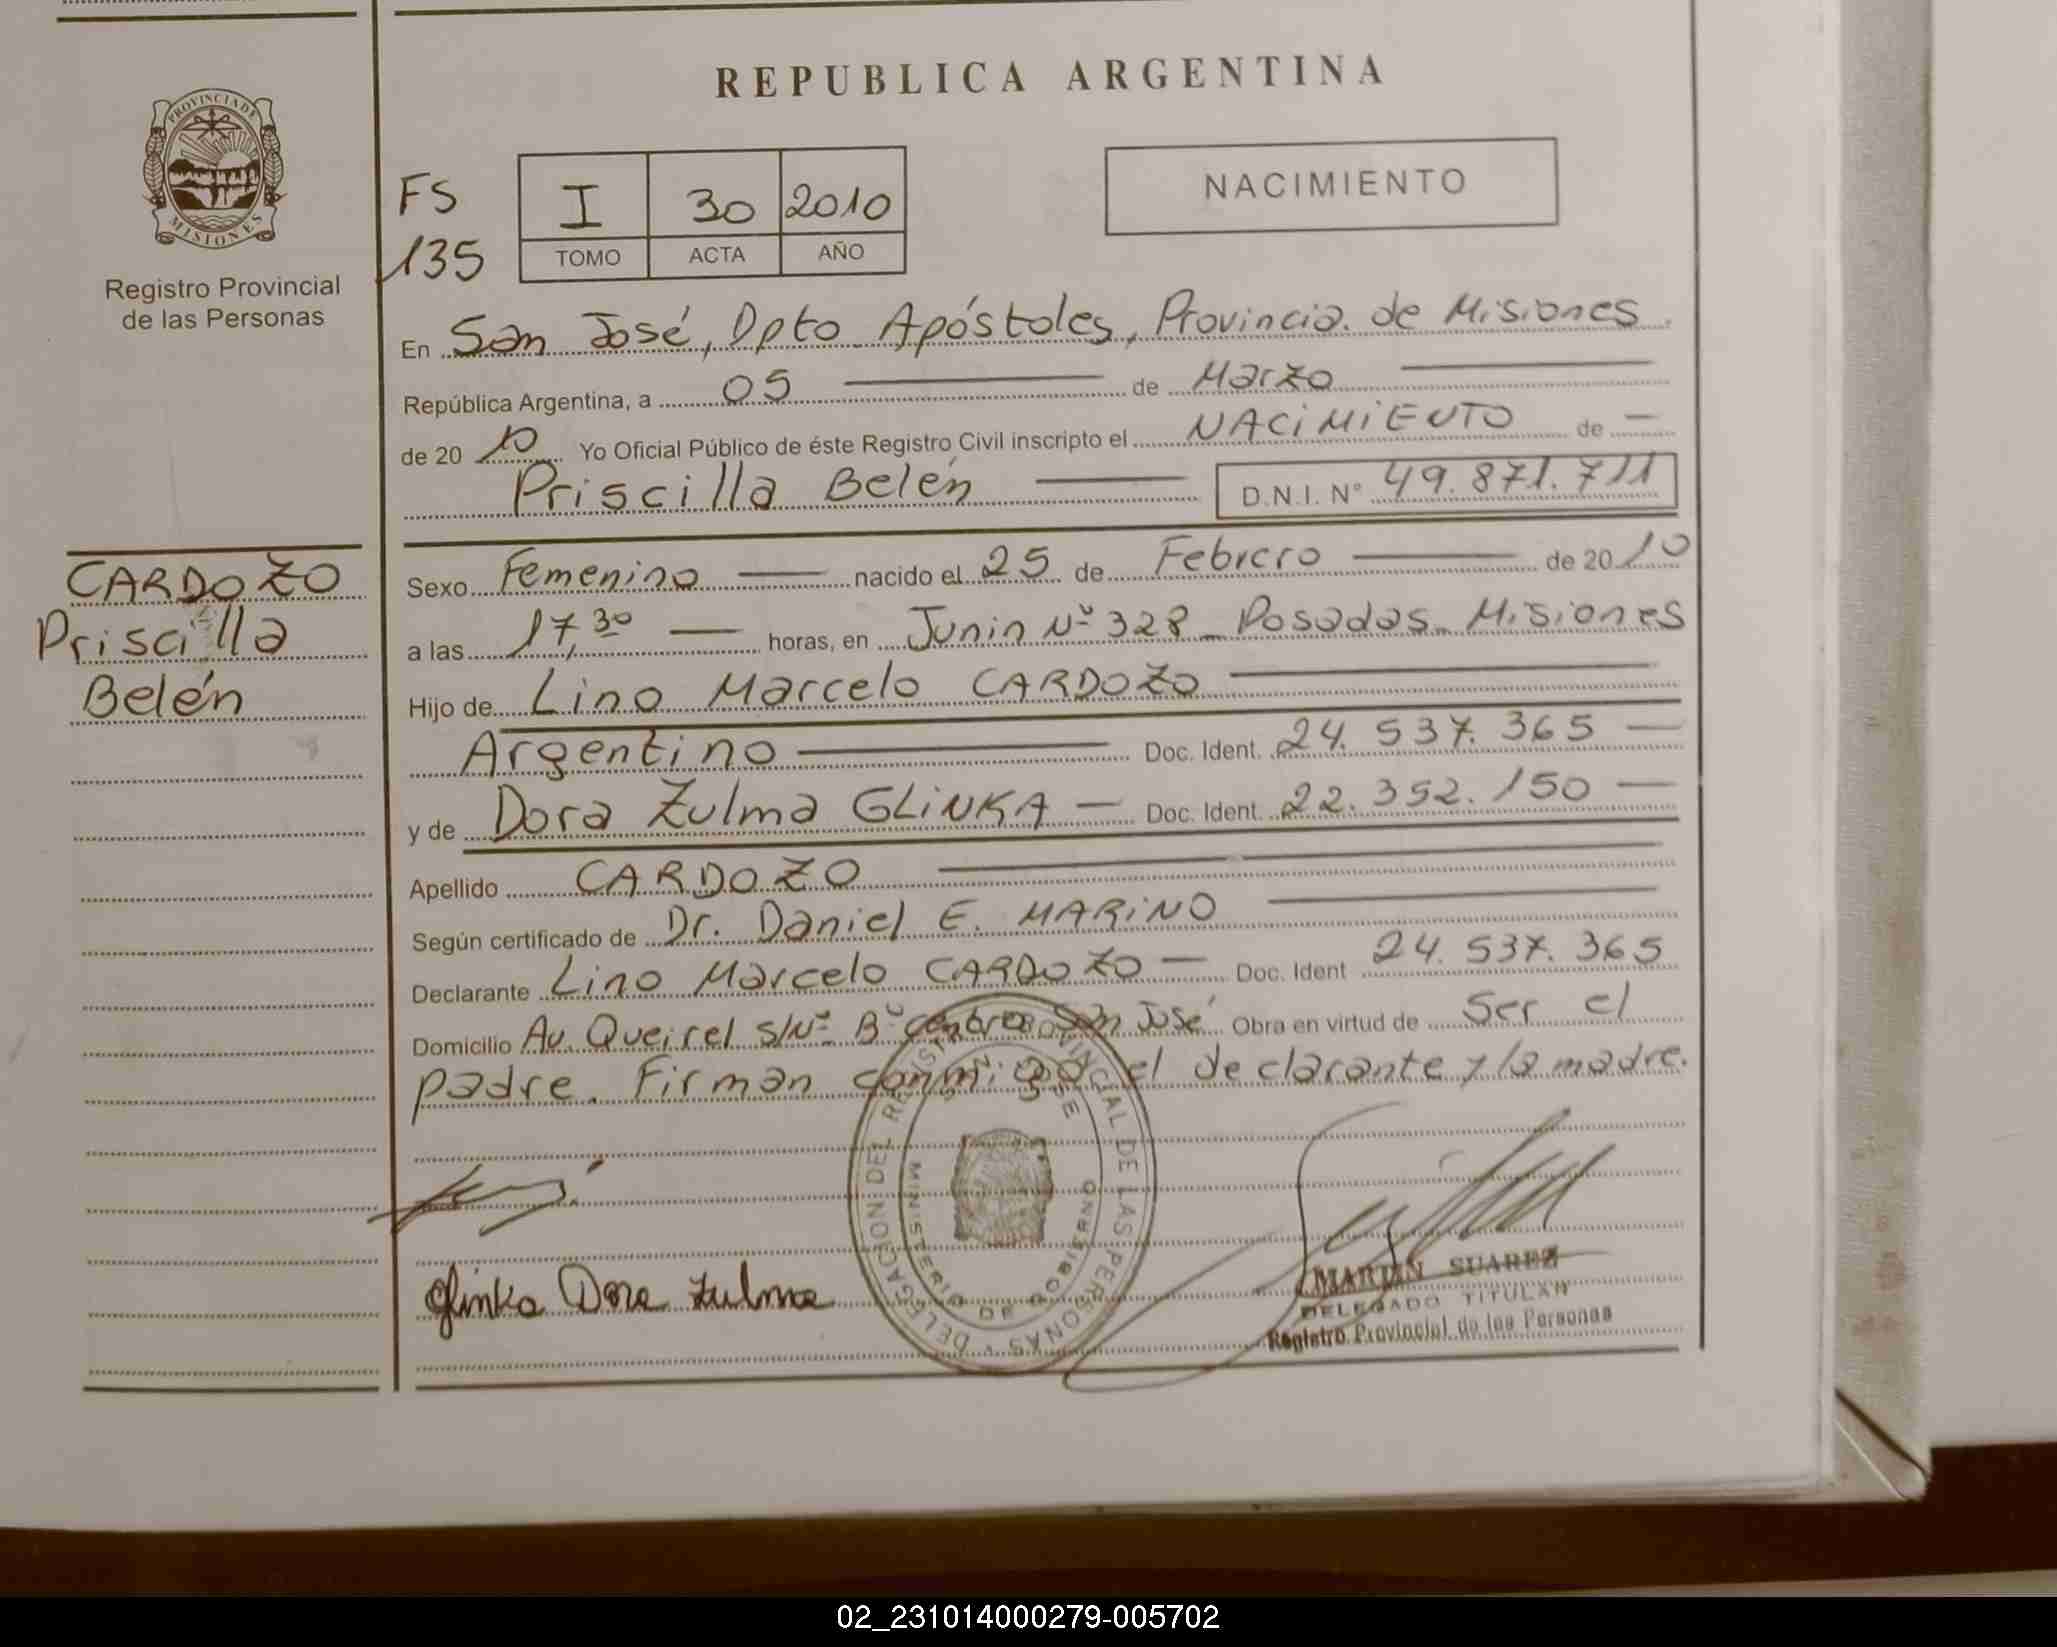 REPUBLICA ARGENTINA
PROVINCIA DE
MISIONES
Registro Provincial
de las Personas
FS
135
I 30 2010
TOMO ACTA AÑO
NACIMIENTO
En San José, Dpto Apóstoles, Provincia de Misiones
República Argentina, a 05 de Marzo
de 2010 Yo Oficial Público de éste Registro Civil inscripto el NACIMIENTO de
Priscilla Belén D.N.I. Nº 49.871.711
CARDOZO
Priscilla
Belén
Sexo Femenino nacido el 25 de Febrero de 2010
a las 17,30 horas, en Junin Nº 328 - Posadas - Misiones
Hijo de Lino Marcelo CARDOZO
Argentino Doc. Ident. 24.537.365
y de Dora Zulma GLINKA Doc. Ident. 22.352.150
Apellido CARDOZO
Según certificado de Dr. Daniel E. MARINO
Declarante Lino Marcelo CARDOZO Doc. Ident 24.537.365
Domicilio Av. Queirel s/Nº Bº centro San José Obra en virtud de Ser el
padre. Firman conmigo el declarante y la madre.
DELEGACION DEL REGISTRO PROVINCIAL DE LAS PERSONAS
SAN JOSE
MINISTERIO DE GOBIERNO
Glinka Dora Zulma
MARTIN SUAREZ
DELEGADO TITULAR
Registro Provincial de las Personas
02_231014000279-005702